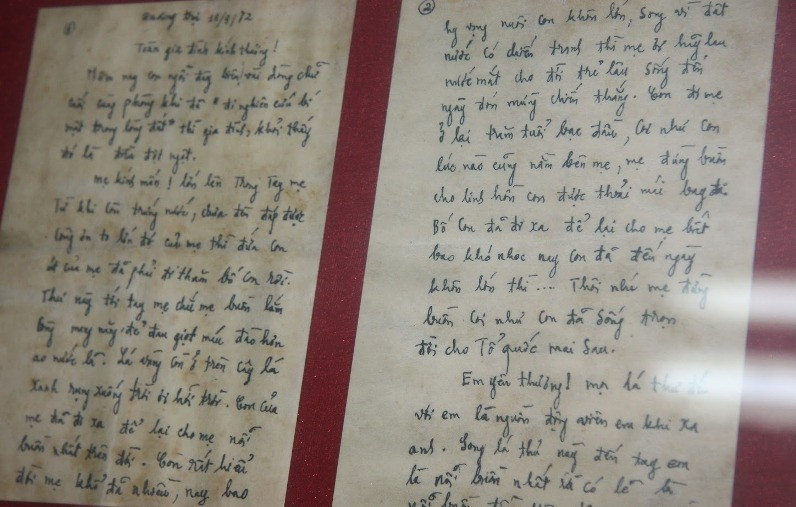 ①
Quảng Trị 11/9/72
Toàn gia đình kính thương!
Hôm nay con ngồi đây biên vài dòng chữ
cuối cùng phòng khi đã "đi nghiên cứu bí
mật trong lòng đất" thì gia đình khỏi thấy
đó là điều đột ngột.
Mẹ kính mến! lớn lên Trong Tay mẹ
Từ khi còn trứng nước, chưa đền đáp được
công ơn to lớn đó của mẹ thì đứa con
út của mẹ đã phải đi theo bố con rồi.
Thư này tới tay mẹ chắc mẹ buồn lắm
lòng mẹ này để đau giọt máu đào hơn
ao nước lã. Lá vàng còn ở trên cây lá
xanh rụng xuống trời ơi hỡi trời. Con của
mẹ đã đi xa để lại cho mẹ nỗi
buồn nhất trên đời. Con rất hiểu
đời mẹ khổ đã nhiều, nay bao
②
hy vọng nuôi con khôn lớn, song vì đất
nước có chiến tranh thì mẹ ơi hãy lau
nước mắt cho đời trẻ lâu sống đến
ngày đón mừng chiến thắng. Con đi mẹ
ở lại trăm tuổi bạc đầu, coi như con
lúc nào cũng nằm bên mẹ, mẹ đừng buồn
cho linh hồn con được thoải mái bay
Bố con đã đi xa để lại cho mẹ biết
bao khó nhọc nay con đã đến ngày
khôn lớn thì... Thôi nhé mẹ đừng
buồn coi như con đã sống trọn
đời cho Tổ quốc mai sau.
Em yêu thương! lá
với em là nguồn động viên em khi xa
anh. Song lá thư này đến tay em
là nỗi buồn nhất và có lẽ là
nỗi buồn